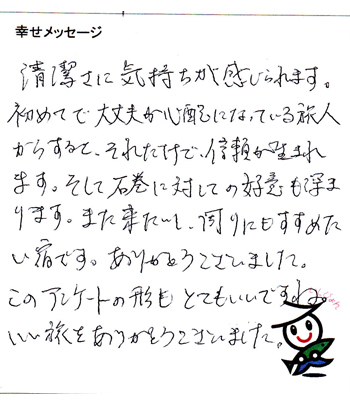 幸せメッセージ
清潔さに気持ちが感じられます。
初めてで大丈夫か心配になっている旅人
からすると、それだけで、信頼が生まれ
ます。そして石巻に対しての好意も深ま
ります。また来たいし、周りにもすすめた
い宿です。ありがとうございました。
このアンケートの形もとてもいいですね。
いい旅をありがとうございました。